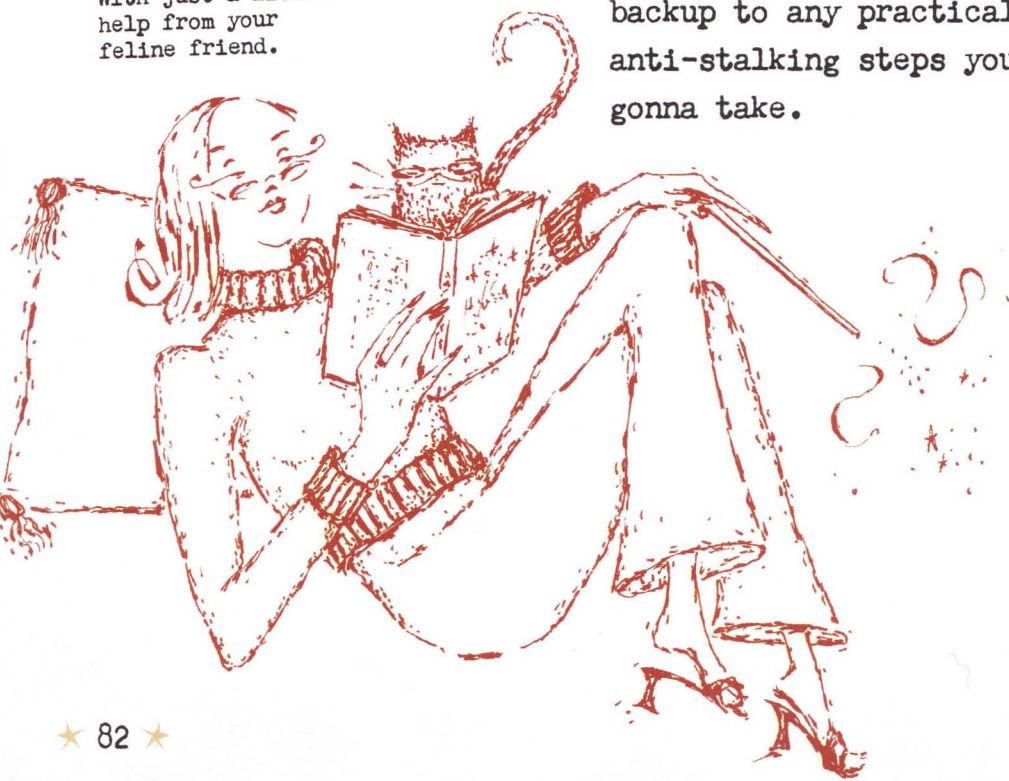 help from your
feline friend.
backup to any practical
anti-stalking steps you
gonna take.
82